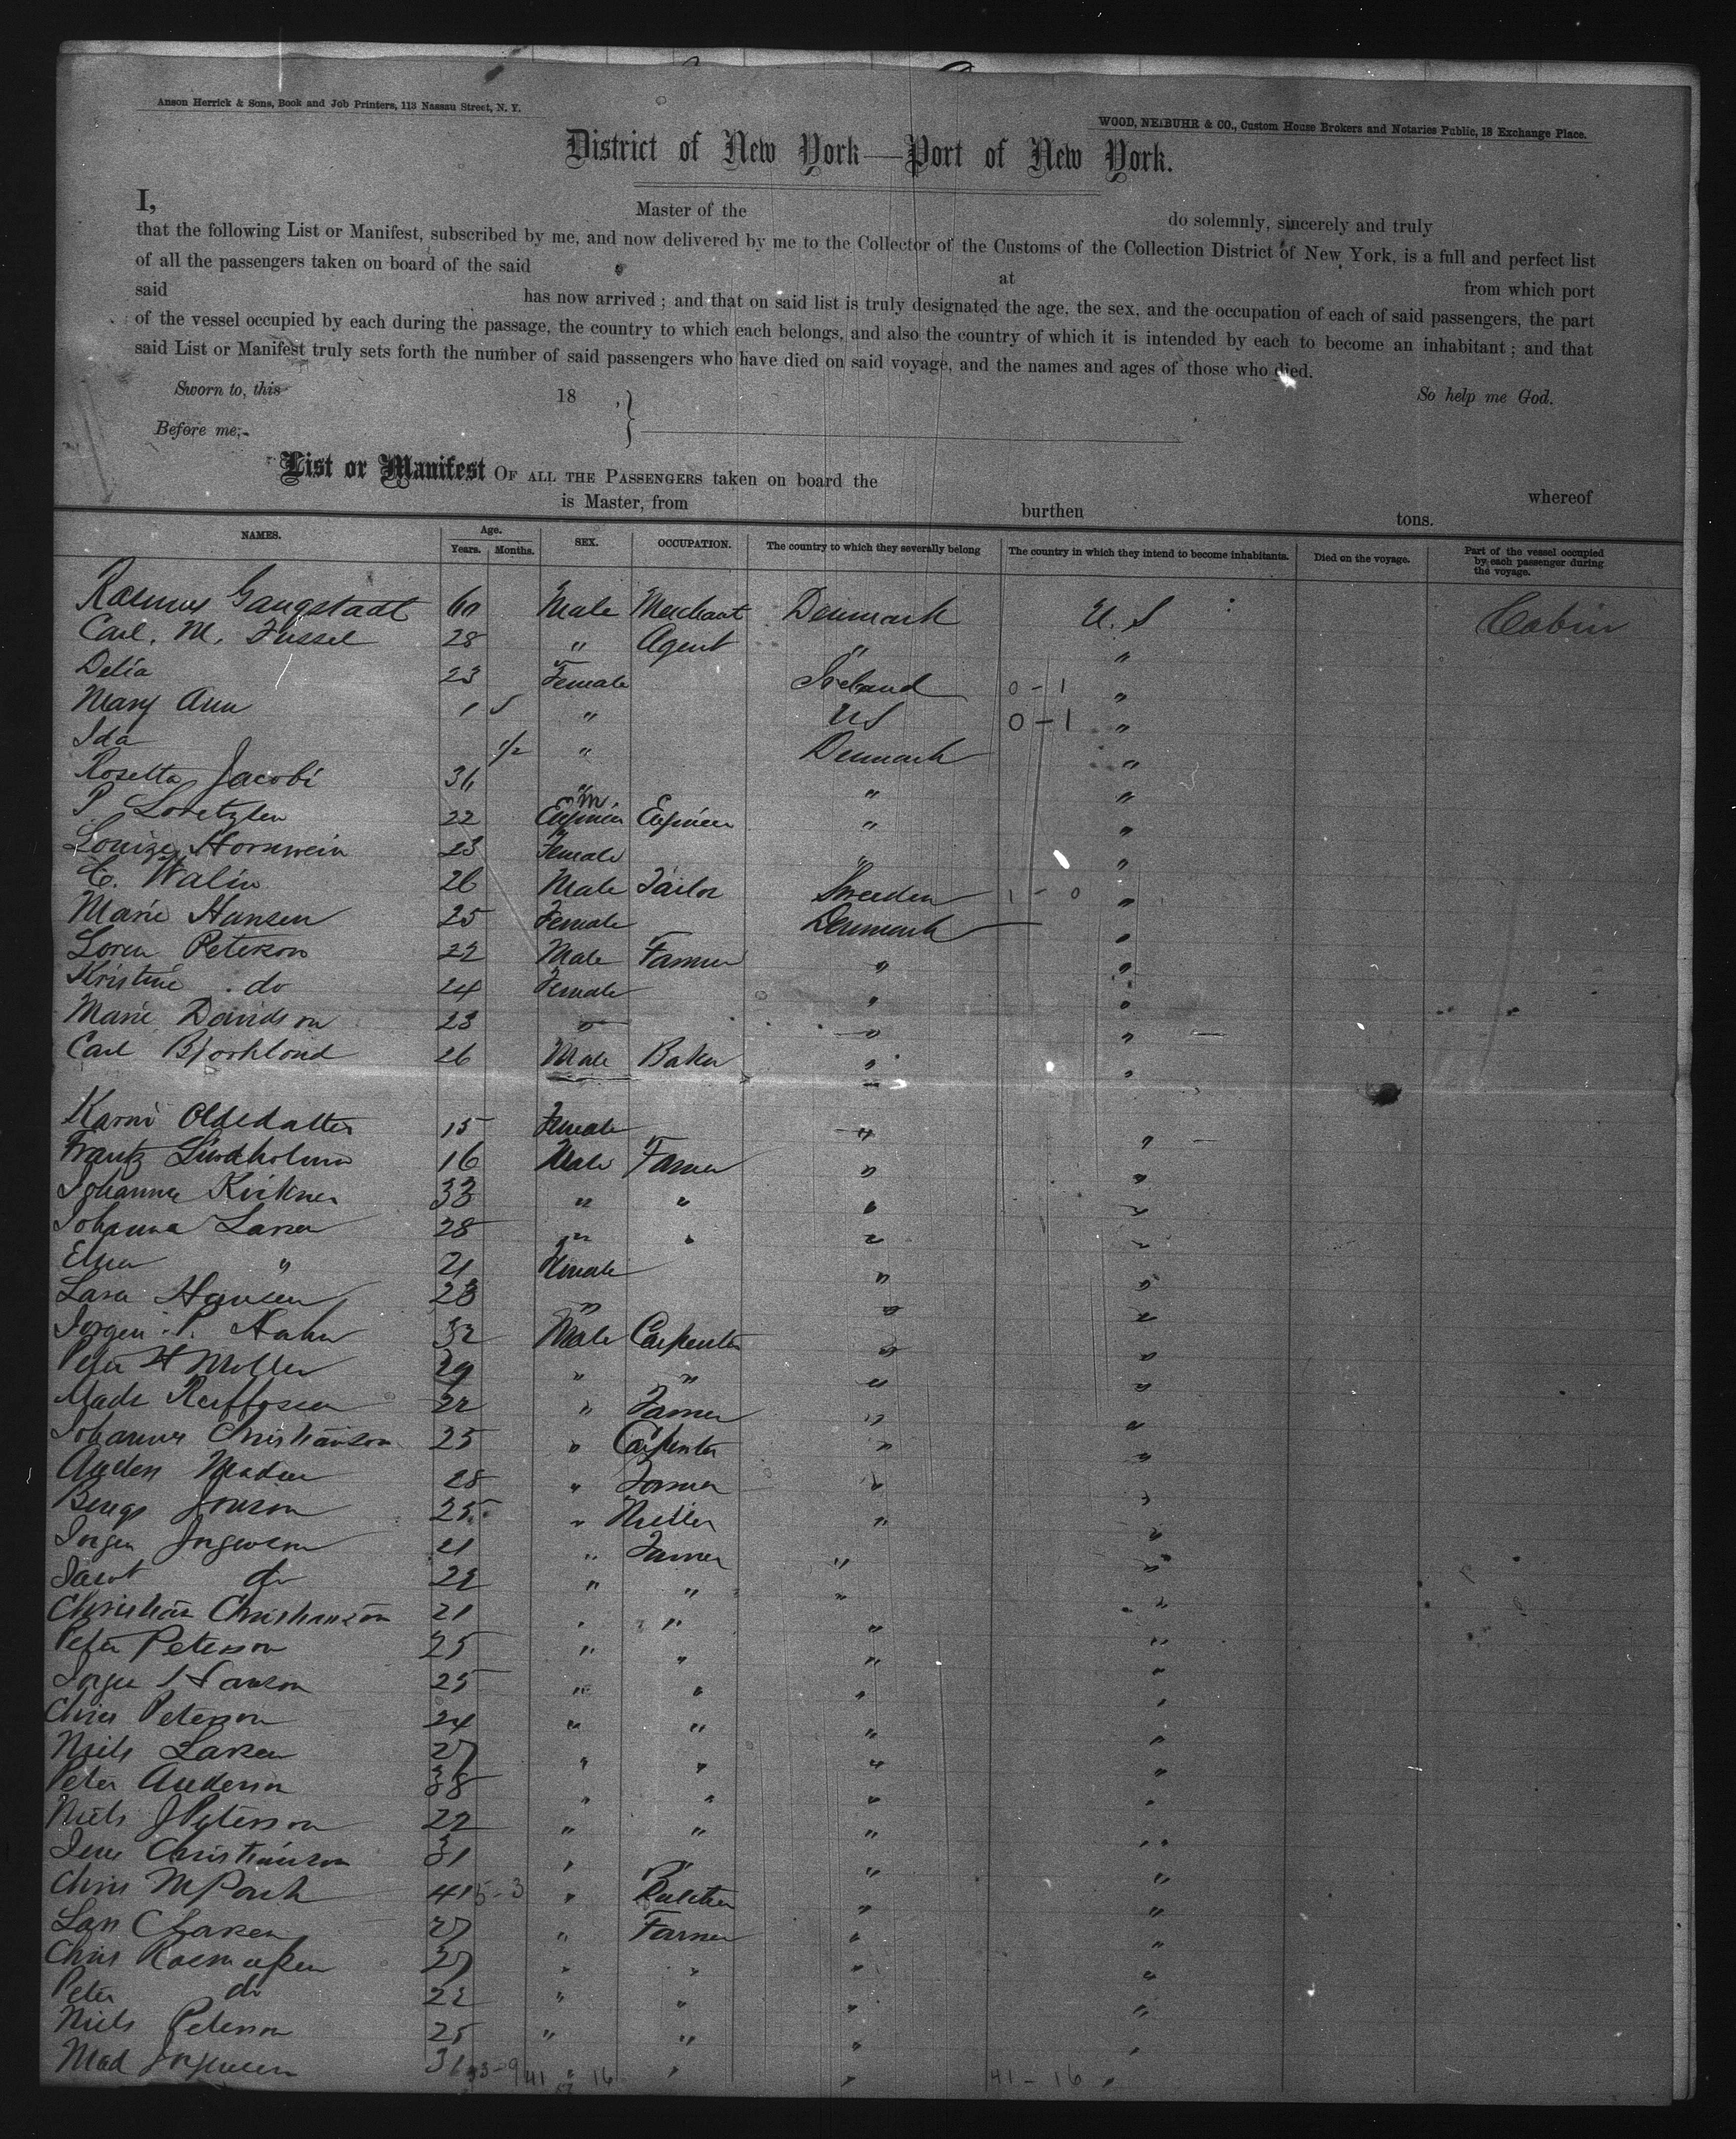 Anson Herrick & Sons, Book and Job Printers, 113 Nassau Street, N. Y.
WOOD, NEIBUHR & CO., Custom House Brokers and Notaries Public, 18 Exchange Place.
District of New York—Port of New York.
I, Master of the do solemnly, sincerely and truly
that the following List or Manifest, subscribed by me, and now delivered by me to the Collector of the Customs of the Collection District of New York, is a full and perfect list
of all the passengers taken on board of the said at from which port
said has now arrived; and that on said list is truly designated the age, the sex, and the occupation of each of said passengers, the part
of the vessel occupied by each during the passage, the country to which each belongs, and also the country of which it is intended by each to become an inhabitant; and that
said List or Manifest truly sets forth the number of said passengers who have died on said voyage, and the names and ages of those who died.
Sworn to, this 18 So help me God.
Before me,
List or Manifest OF ALL THE PASSENGERS taken on board the whereof
is Master, from burthen tons.
NAMES. Age. Years. Months. SEX. OCCUPATION. The country to which they severally belong The country in which they intend to become inhabitants. Died on the voyage. Part of the vessel occupied by each passenger during the voyage.
Rasmus Gangstadt 60 Male Merchant Denmark U. S Cabin
Carl. M. Fussel 28 " Agent " "
Delia 23 Female Ireland 0 - 1 "
Mary Ann 1 5 " US 0 - 1 "
Ida 1/2 " Denmark "
Rosetta Jacobi 36 " " "
P. Loretzten 22 m. Engineer " "
Louize Hornwein 23 Female " "
C. Walin 26 Male Tailor Sweeden 1 - 0 "
Marie Hansen 25 Female Denmark "
Loren Peterson 22 Male Farmer " "
Kristine do 24 Female " "
Marie Davidson 23 " " "
Carl Bjorklond 26 Male Baker " "
Karni Oldsdatter 15 Female " "
Frantz Lindholmn 16 Male Farmer " "
Johannes Kirkner 33 " " " "
Johanna Larsen 28 " " " "
Elna " 21 Female " "
Lara Hansen 23 " " "
Jorgen P. Hahn 32 Male Carpenter " "
Peter H Moller 29 " " " "
Mads 22 " Farmer " "
Johannes Christianson 25 " Carpenter " "
Anders Madsen 28 " Farmer " "
Jonson 25 " Miller " "
Jorgen Jorgensen 21 " Farmer " "
Jacob do 22 " " " "
Christian Christianson 21 " " " "
Peter Peterson 25 " " " "
Hanson 25 " " " "
Chris Peterson 24 " " " "
Niels Larsen 27 " " " "
Peter Anderson 38 " " " "
Niels J Peterson 22 " " " "
Jens Christianson 31 " " " "
Chris M 41 5-3 " " "
Lars C Larsen 27 " Farmer " "
Chris Rasmussen 27 " " " "
Peter do 22 " " " "
Niels Peterson 25 " " " "
Mad Jorgensen 41 16 " " " 41 - 16 "